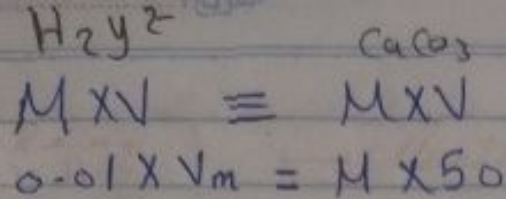 H₂y²⁻ CaCo₃
M X V ≡ M X V
0.01 X Vm = M X 50